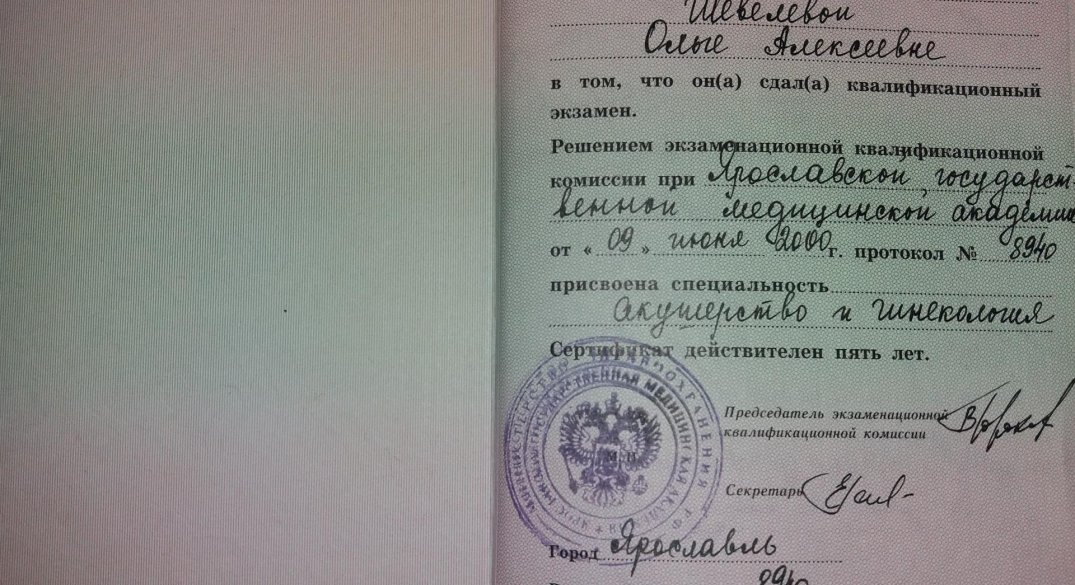 Шевелевой
Ольге Алексеевне
в том, что он(а) сдал(а) квалификационный
экзамен.
Решением экзаменационной квалификационной
комиссии при Ярославской государст-
венной медицинской академии
от « 09 » июня 2000 г. протокол № 8940
присвоена специальность
акушерство и гинекология
Сертификат действителен пять лет.
МИНИСТЕРСТВО ЗДРАВООХРАНЕНИЯ РФ
ГОСУДАРСТВЕННАЯ МЕДИЦИНСКАЯ АКАДЕМИЯ
М. П.
Председатель экзаменационной
квалификационной комиссии
Секретарь
Город Ярославль
8940